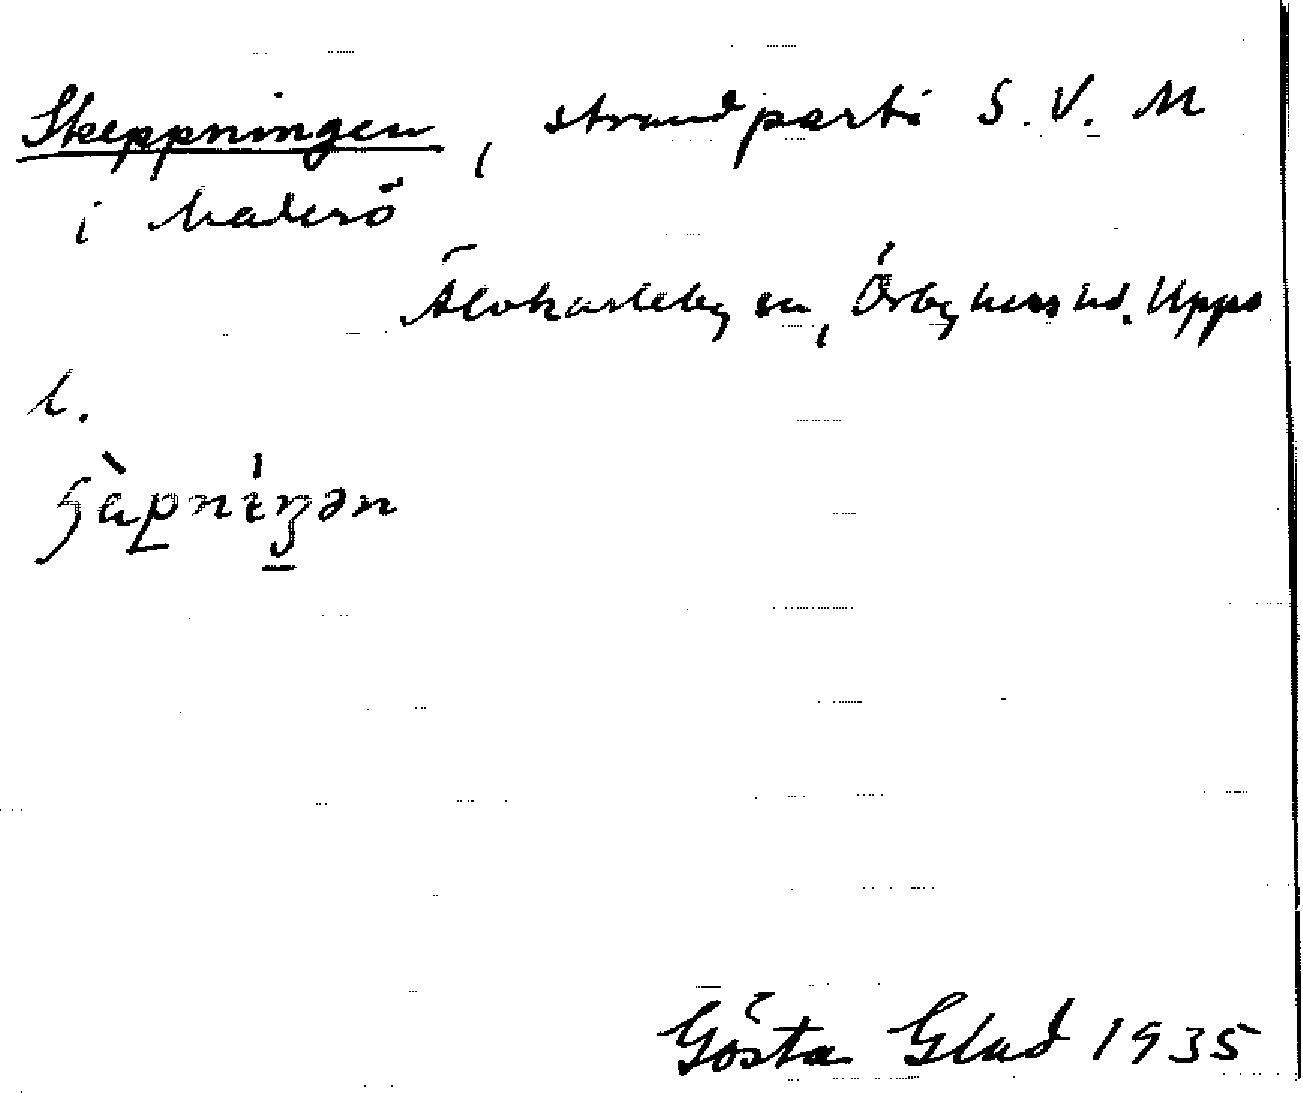 Skeppningen, strandparti S.V. M
i Kaderö
Älvkarleby sn, Örbyhus hd. Upps
l.
Gösta Glad 1935